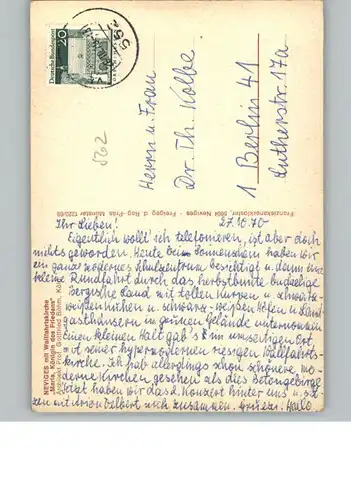 Deutsche Bundespost
20
562
Herrn u. Frau
Dr. Th. Kolbe
1 Berlin 41
Lutherstr. 17a
Franziskanerkloster 5604 Neviges - Freigeg. d. Reg.-Präs. Münster
NEVIGES mit Wallfahrtskirche
"Maria, Königin des Friedens"
Architekt Prof. Gottfried Böhm, Köln
27.10.70
Ihr Lieben!
Eigentlich wollt ich telefonieren, ist aber doch
nichts geworden. Heute bei Sonnenschein haben wir
ein ganz modernes Schulzentrum besichtigt u. dann eine
kleine Rundfahrt durch das herbstbunte buckelige
Bergische Land mit tollen Kurven u. schwarz-
weißen Höfen u. Land-
gasthäusern im grünen Gelände unternommen
einen kleinen Halt gab's im unseligen Ort
mit seiner hypermodernen riesigen Wallfahrts-
kirche. Ich hab allerdings schon schönere mo-
derne Kirchen gesehen als dies Betongebirge.
Jetzt haben wir das 2. Konzert hinter uns u. sit-
zen mit Velbert noch zusammen.